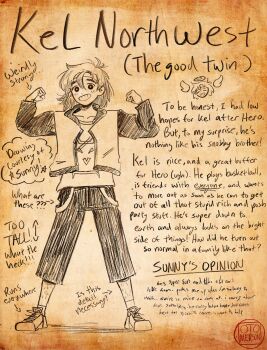 Kel Northwest
(The good twin)
Weirdly
strong!
Drawing
courtesy of
Sunny
What are
these ???
TOO
TALL!
what the
heck!!!
Runs
everywhere
Is this
detail
necessary?
To be honest, I had low
hopes for Kel after Hero.
But, to my surprise, he's
nothing like his snobby brother!
Kel is nice, and a great buffer
for Hero (ugh). He plays basketball,
is friends with everyone, and wants
to move out as soon as he can to get
out of all that stupid rich and posh
party stuff. He's super down to
earth and always looks on the bright
side of things! How did he turn out
so normal in a family like that?
SUNNY'S OPINION